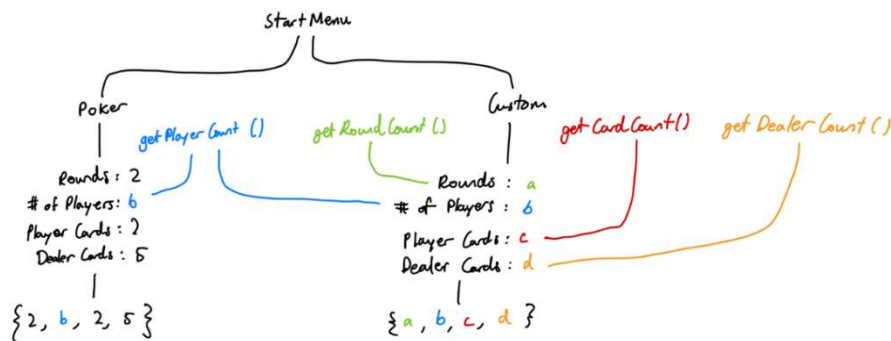 Start Menu
Poker
Custom
getPlayerCount ()
getRoundCount ()
getCardCount()
getDealerCount()
Rounds : 2
# of Players: b
Player Cards: 2
Dealer Cards: 5
{2, b, 2, 5}
Rounds : a
# of Players : b
Player Cards : c
Dealer Cards : d
{a, b, c, d }